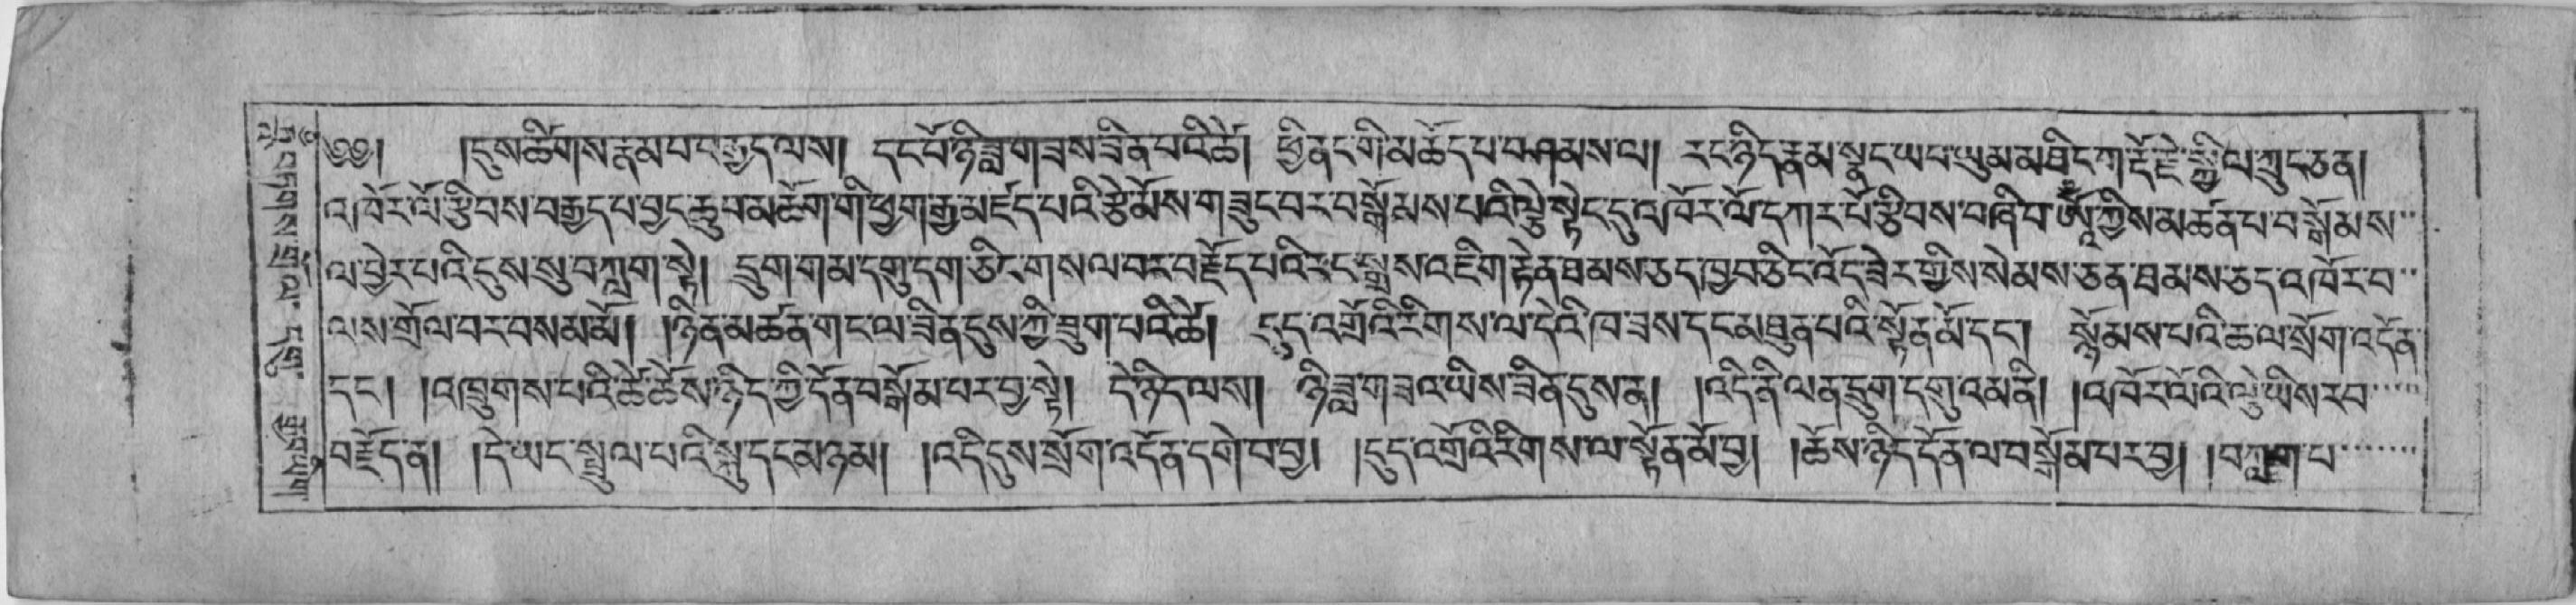 ༄༅། །དུས་ཚིགས་རྣམ་པ་བརྒྱད་ལས། དང་པོ་ཉི་ཟླ་གཟས་ཟིན་པའི་ཚེ། ཕྱི་ནང་གི་མཆོད་པ་བཤམས་ལ། རང་ཉིད་རྣམ་སྣང་ཡབ་ཡུམ་མཐིང་ཀ་རྡོ་རྗེ་སྐྱིལ་ཀྲུང་ཅན།
འཁོར་ལོ་རྩིབས་བརྒྱད་པ་བྱང་ཆུབ་མཆོག་གི་ཕྱག་རྒྱ་མཛད་པའི་རྩེ་མོས་གཟུང་བར་བསྒོམས་པའི་ལྟེ་སྟེང་དུ་འཁོར་ལོ་དཀར་པོ་རྩིབས་བཞི་པ་ཨོཾ་གྱིས་མཚན་པ་བསྒོམས་
ལ་བྱེར་པའི་དུས་སུ་བཀླག་སྟེ། དྲུག་གམ་དགུ་དག་ཅི་རིགས་ལ་བར་བརྗོད་པའི་རང་སྒྲས་འཇིག་རྟེན་ཐམས་ཅད་ཁྱབ་ཅིང་འོད་ཟེར་གྱིས་སེམས་ཅན་ཐམས་ཅད་འཁོར་བ་
ལས་གྲོལ་བར་བསམ་མོ། །ཉིན་མཚན་གང་ལ་ཟིན་དུས་ཀྱི་ཟུག་པའི་ཚེ། དུད་འགྲོའི་རིགས་ལ་དེའི་ཁ་ཟས་དང་མཐུན་པའི་སྟོན་མོ་དང་། སྙོམས་པའི་ཆ་ལ་སྲོག་འདོན་
དང་། །འཁྲུགས་པའི་ཚེ་ཆོས་ཉིད་ཀྱི་དོན་བསྒོམ་པར་བྱ་སྟེ། དེ་ཉིད་ལས། ཉི་ཟླ་གཟའ་ཡིས་ཟིན་དུས་ན། །འདི་ནི་ལན་དྲུག་དགུ་འམ་ནི། །འཁོར་ལོའི་ལྟེ་ཡིས་རབ་
བརྗོད་ན། །དེ་ཡང་སྤྲུལ་པའི་སྐུ་དང་མཉམ། །འདི་དུས་སྲོག་འདོན་དགེ་བ་བྱ། །དུད་འགྲོའི་རིགས་ལ་སྟོན་མོ་བྱ། །ཆོས་ཉིད་དོན་ལ་བསྒོམ་པར་བྱ། །བཀླག་པ་